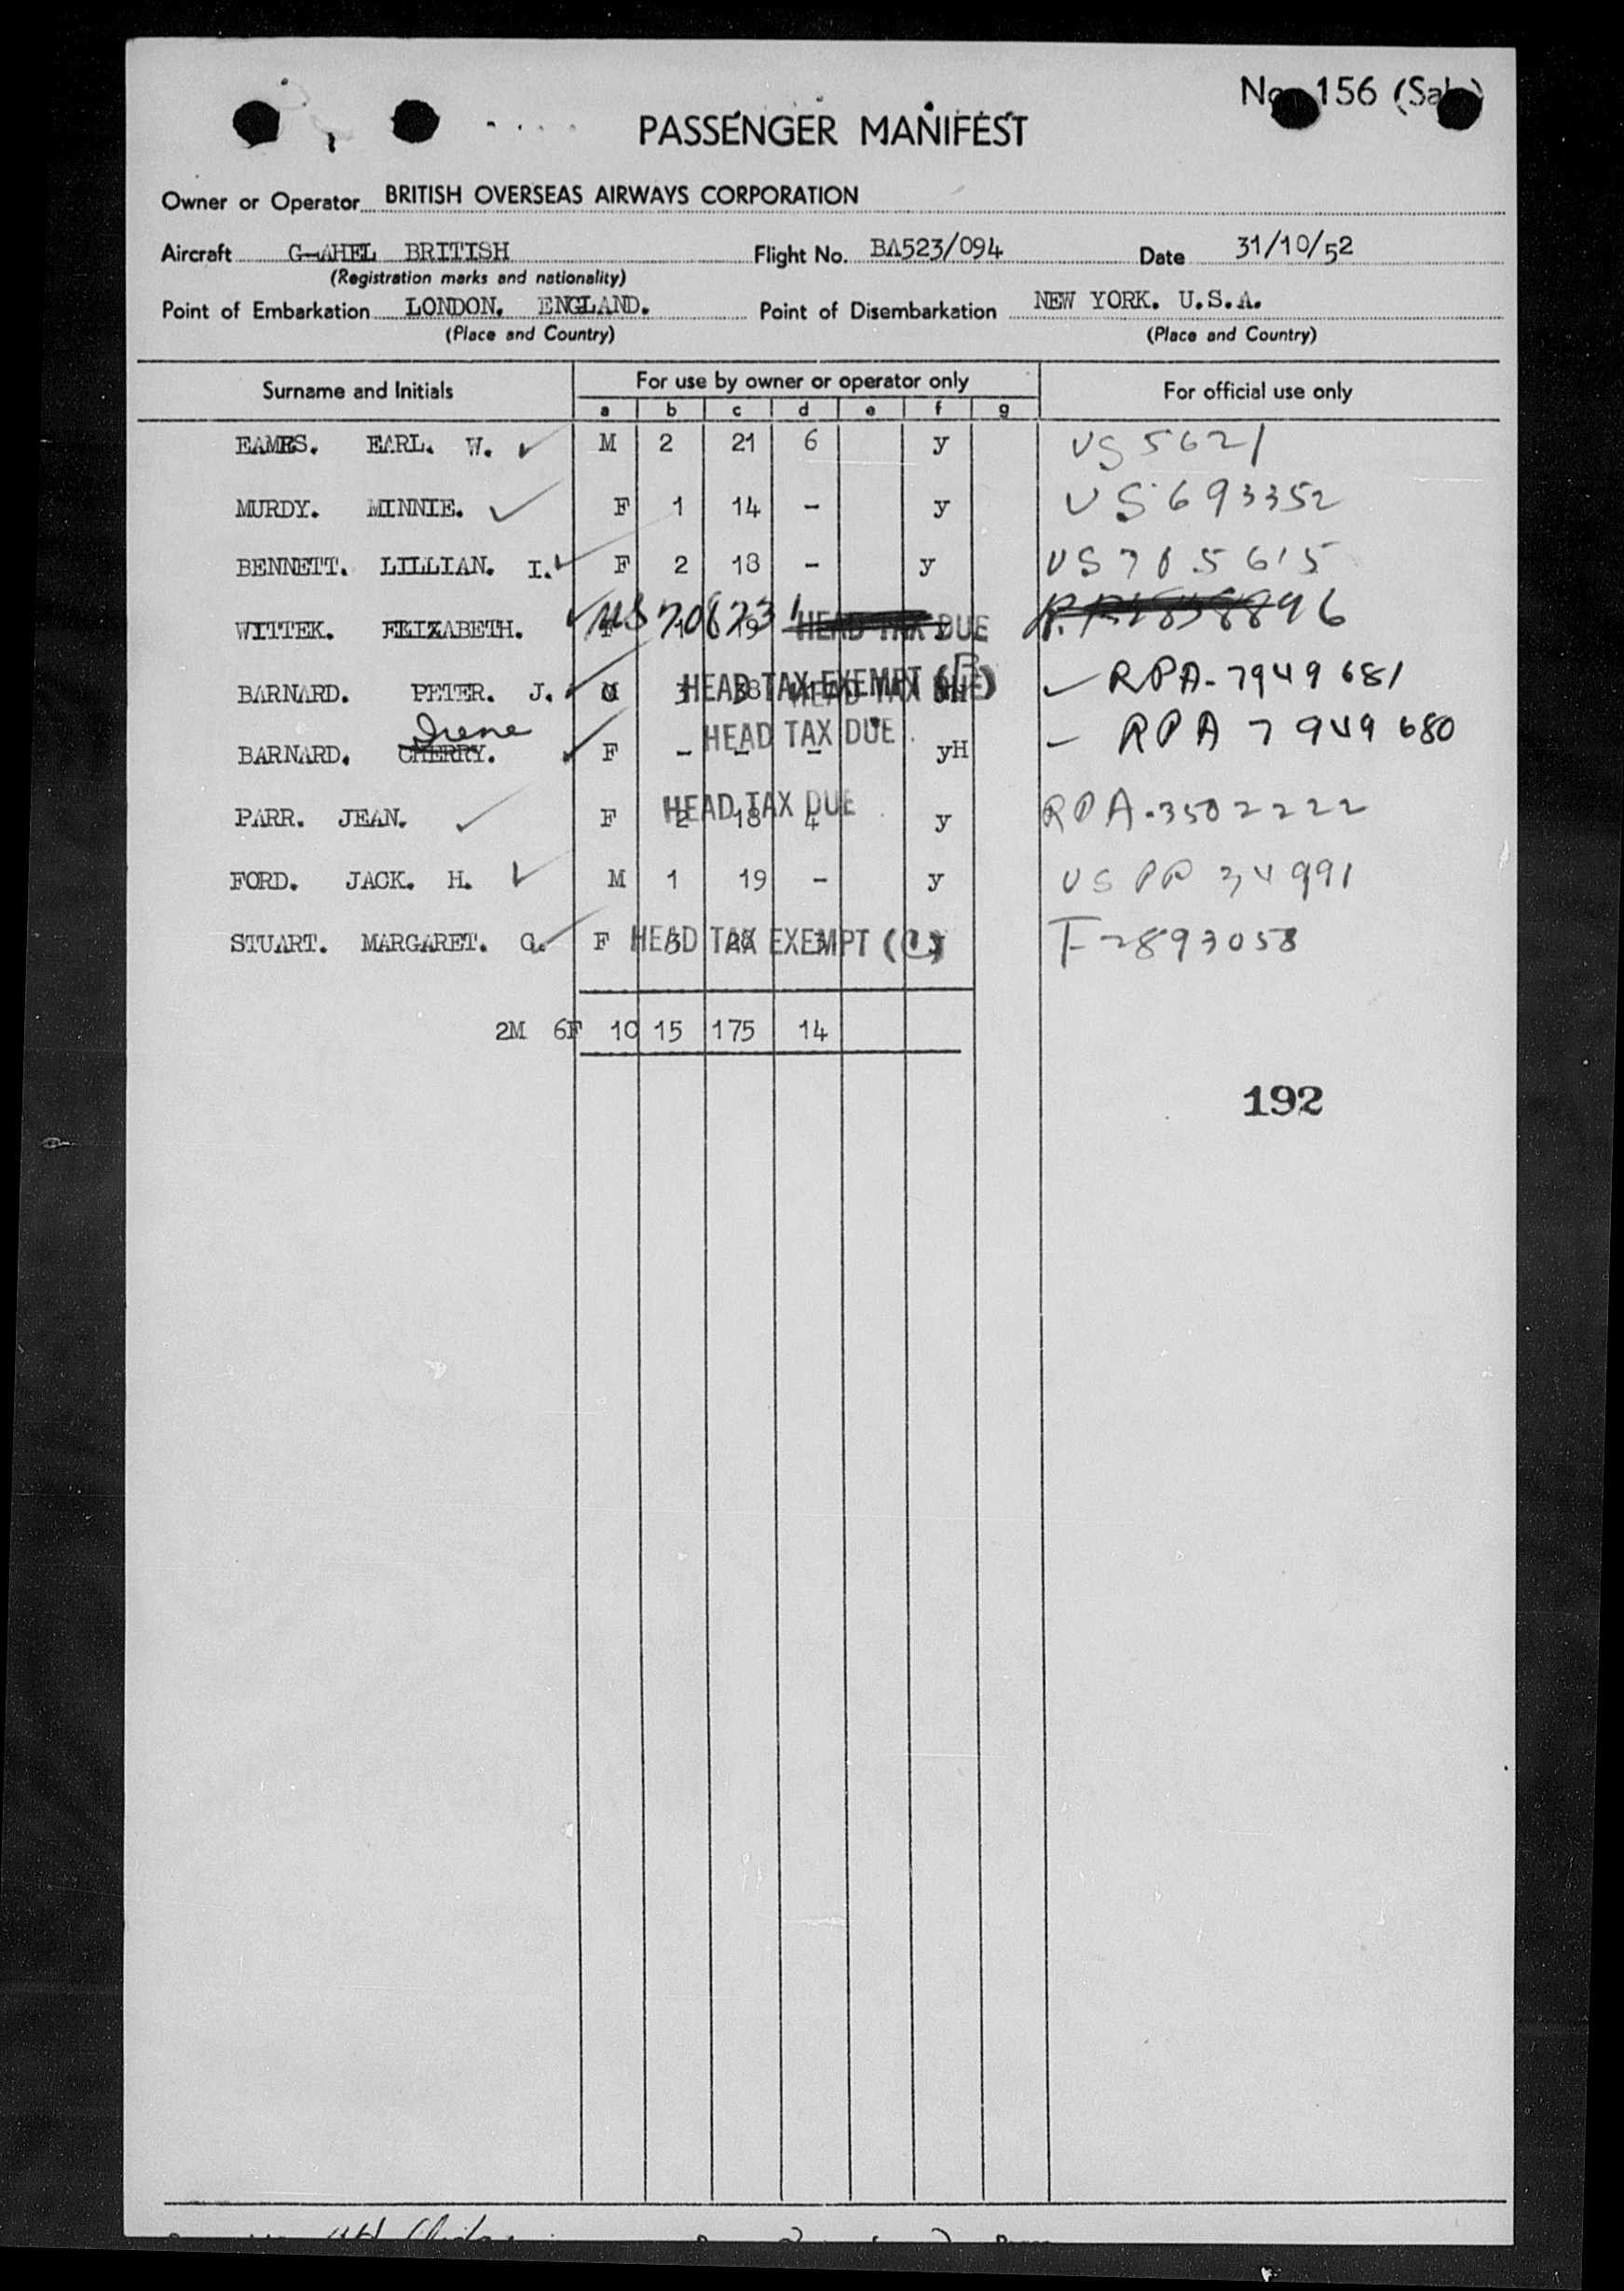 No. 156 (Sal
PASSENGER MANIFEST
Owner or Operator BRITISH OVERSEAS AIRWAYS CORPORATION
Aircraft G-AHEL BRITISH Flight No. BA523/094 Date 31/10/52
(Registration marks and nationality)
Point of Embarkation LONDON. ENGLAND. Point of Disembarkation NEW YORK. U.S.A.
(Place and Country) (Place and Country)
Surname and Initials For use by owner or operator only For official use only
a b c d e f g
EAMES. EARL. W. ✓ M 2 21 6 y US 5621
MURDY. MINNIE. ✓ F 1 14 - y US 693352
BENNETT. LILLIAN. I. ✓ F 2 18 - y US 705615
WITTEK. ELIZABETH. ✓ F 1 19 HEAD TAX DUE
BARNARD. PETER. J. ✓ M 3 38 HEAD TAX EXEMPT HEAD TAX DUE ✓ RPA-7949681
Irene
BARNARD. CHERRY. ✓ F - - - HEAD TAX DUE yH - RPA 7949680
PARR. JEAN. ✓ F 2 18 4 HEAD TAX DUE y RPA-3502222
FORD. JACK. H. ✓ M 1 19 - y US PP 34991
STUART. MARGARET. G. ✓ F 3 28 3 HEAD TAX EXEMPT (C) y F-2893058
2M 6F 10 15 175 14
192